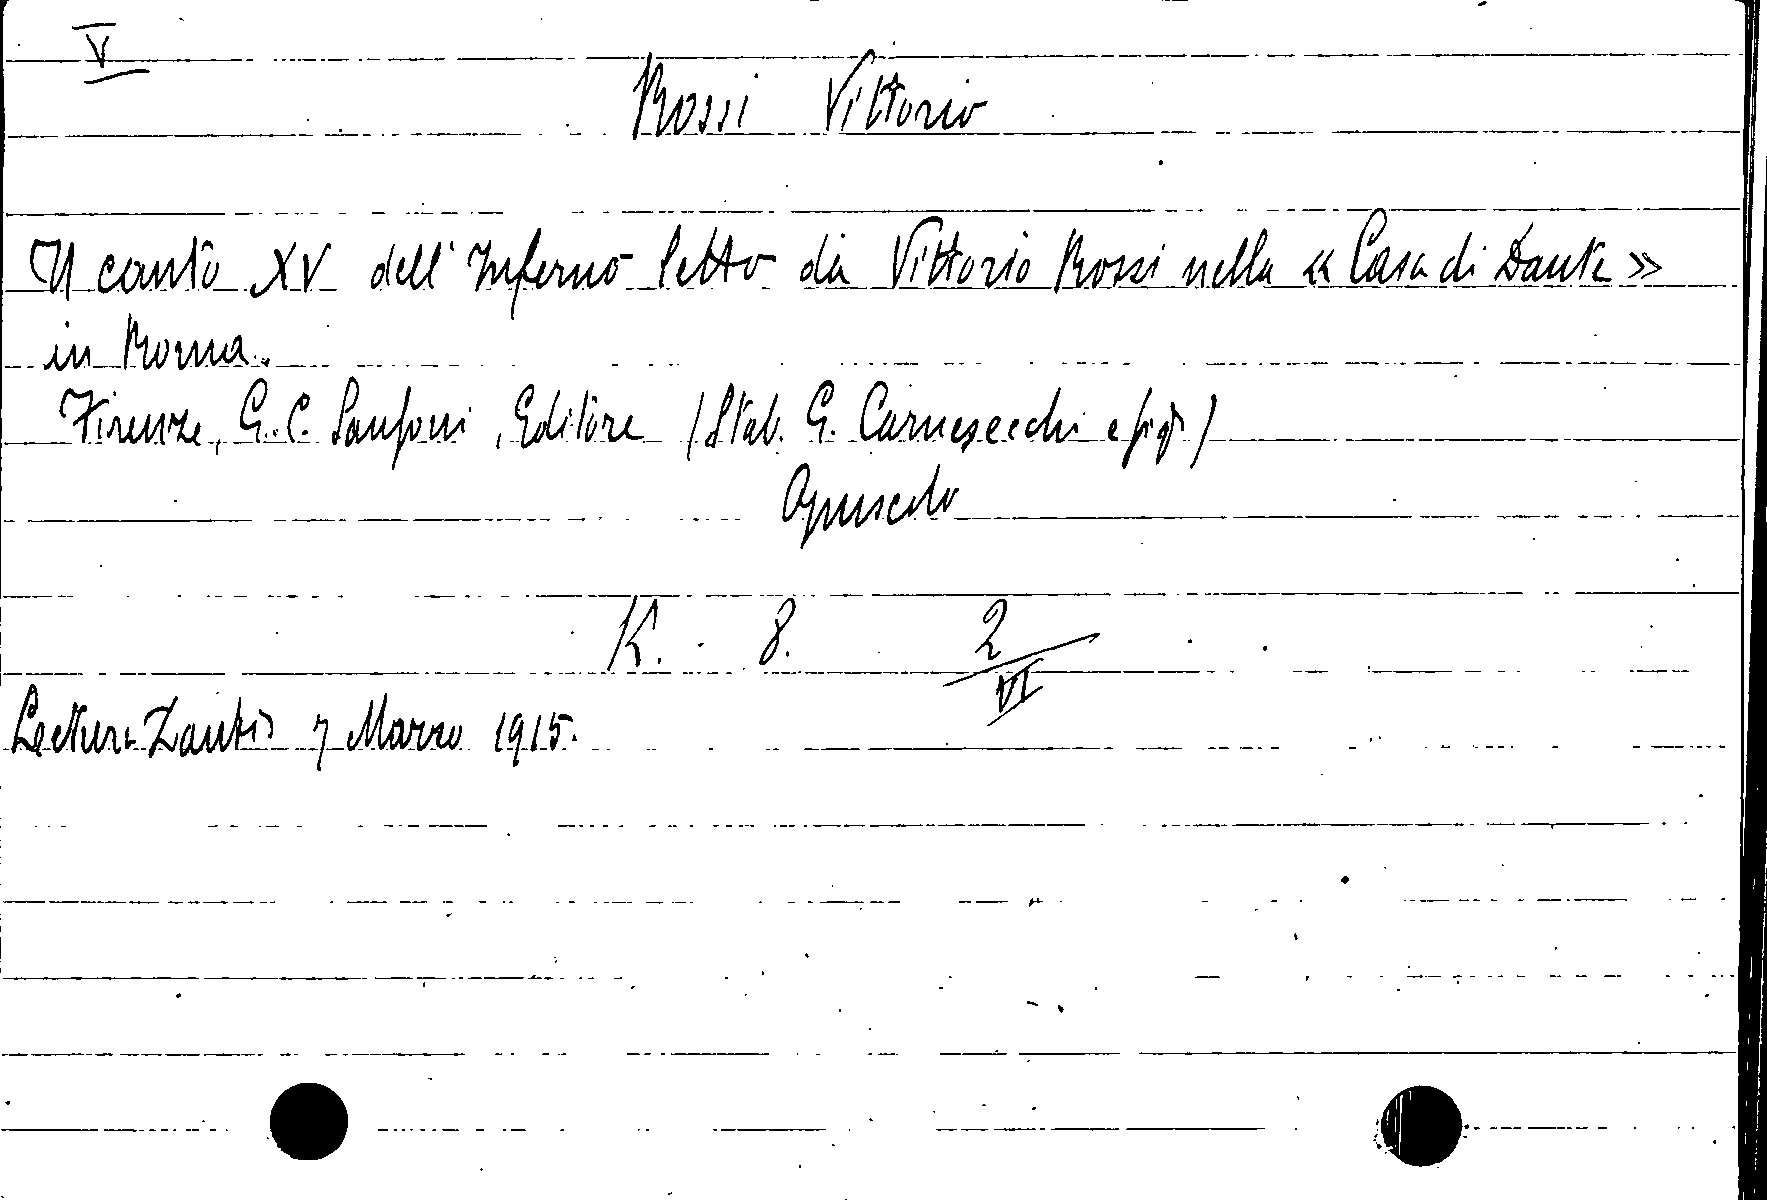 V
Rossi Vittorio
Il canto XV dell'Inferno letto da Vittorio Rossi nella «Casa di Dante»
in Roma.
Firenze, G. C. Sansoni, Editore (Stab. G. Carnesecchi e figi)
Opuscolo
K. 8. 2
VI
Lectura Dantis 7 Marzo 1915.